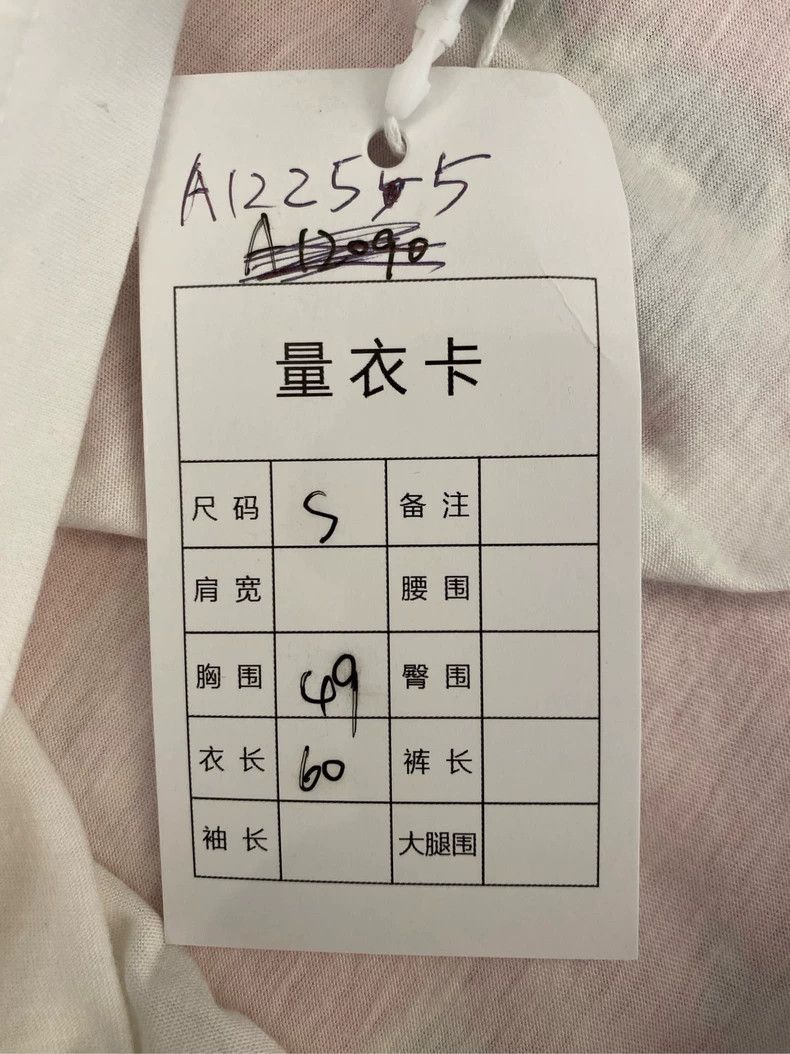 A122555
A12090
量衣卡
尺码 S 备注
肩宽 腰围
胸围 49 臀围
衣长 60 裤长
袖长 大腿围